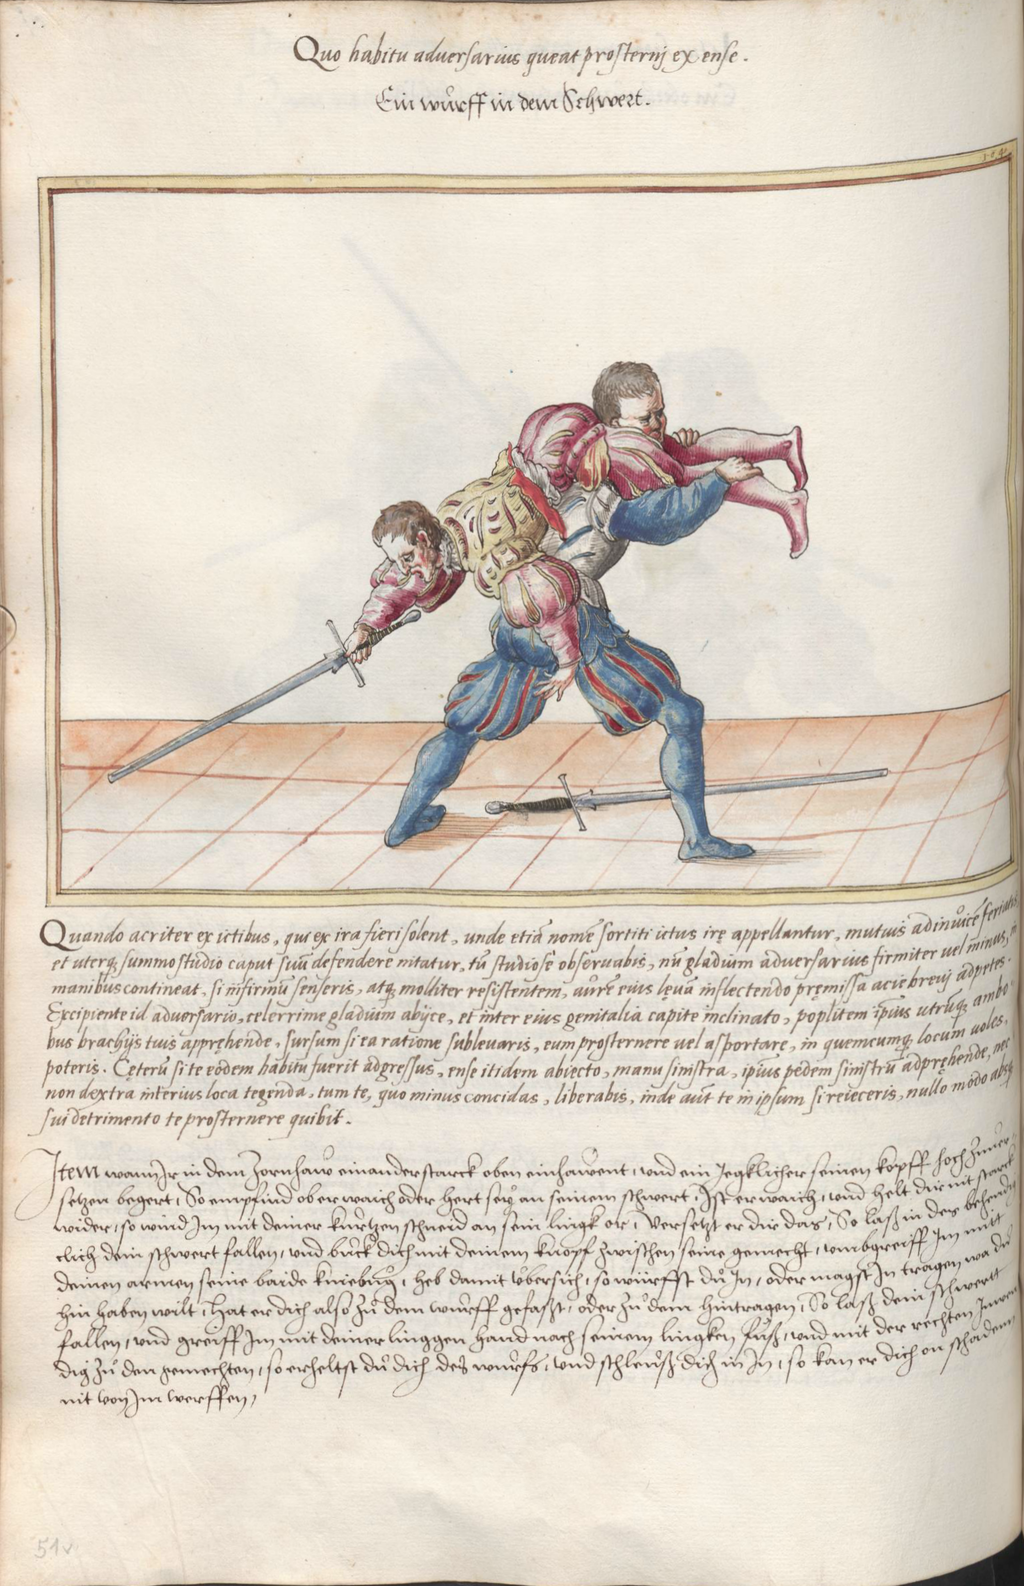 Quo habitu aduersarius queat prosternj ex ense.
Ein wůrff in dem Schwert.
Quando acriter ex ictibus, qui ex ira fieri solent, unde etiā nomē sortiti ictus irę appellantur, mutuis adinuicē feriatis
et uterq; summo studio caput suū defendere nitatur, tū studiosè obseruabis, nū gladium aduersarius firmiter uel minus,
manibus contineat, si infirmū senseris, atq; molliter resistentem, aurē eius lęua inflectendo pręmissa acie breuj adpetes.
Excipiente id aduersario, celerrime gladium abijce, et inter eius genitalia capite inclinato, poplitem ipsius utrūq; ambo
bus brachijs tuis apprehende, sursum si ea ratione subleuaris, eum prosternere uel asportare, in quemcumq; locum uoles,
poteris. Cęterū si te eōdem habitu fuerit adgressus, ense itidem abiecto, manu sinistra, ipsius pedem sinistrū adprehende, nec
non dextra interius loca tegenda, tum te, quo minus concidas, liberabis, inde aūt te in ipsum si reieceris, nullo modo absq;
sui detrimento te prosternere quibit.
Item wann Ir in dem Zornhaw einander starck oben einhawent, vnd ein Jegklicher seinen kopff hoch zuuer
setzen begert, So empfind ob er waich oder hert seÿ an seinem schwert, Ist er waich, vnd helt dir nit starck
wider, so wind Im mit deiner kurtzen schneid an sein linngk or, Versetzt er dir das, So laß in des behend
clich dein schwert fallen, vnd buck dich mit deinem knopf zwischen seine gemecht, vmbgreiff Im mitt
deinen armen seine baide kniebůg, heb damit vbersich, so würffst dů In, oder magst In tragen wa dů
hin haben wilt, Hat er dich also zů dem wůrff gefaßt, oder zů dem hintragen, So laß dein schwertt
fallen, vnd greiff Im mit deiner linggen hand nach seinem lingken fůß, vnd mit der rechten Inwen
dig zů den gemechten, so erheltst dů dich des wůrfs, vnd schleůß dich in In, so kan er dich on schadenn
nit von Im werffen,
51v